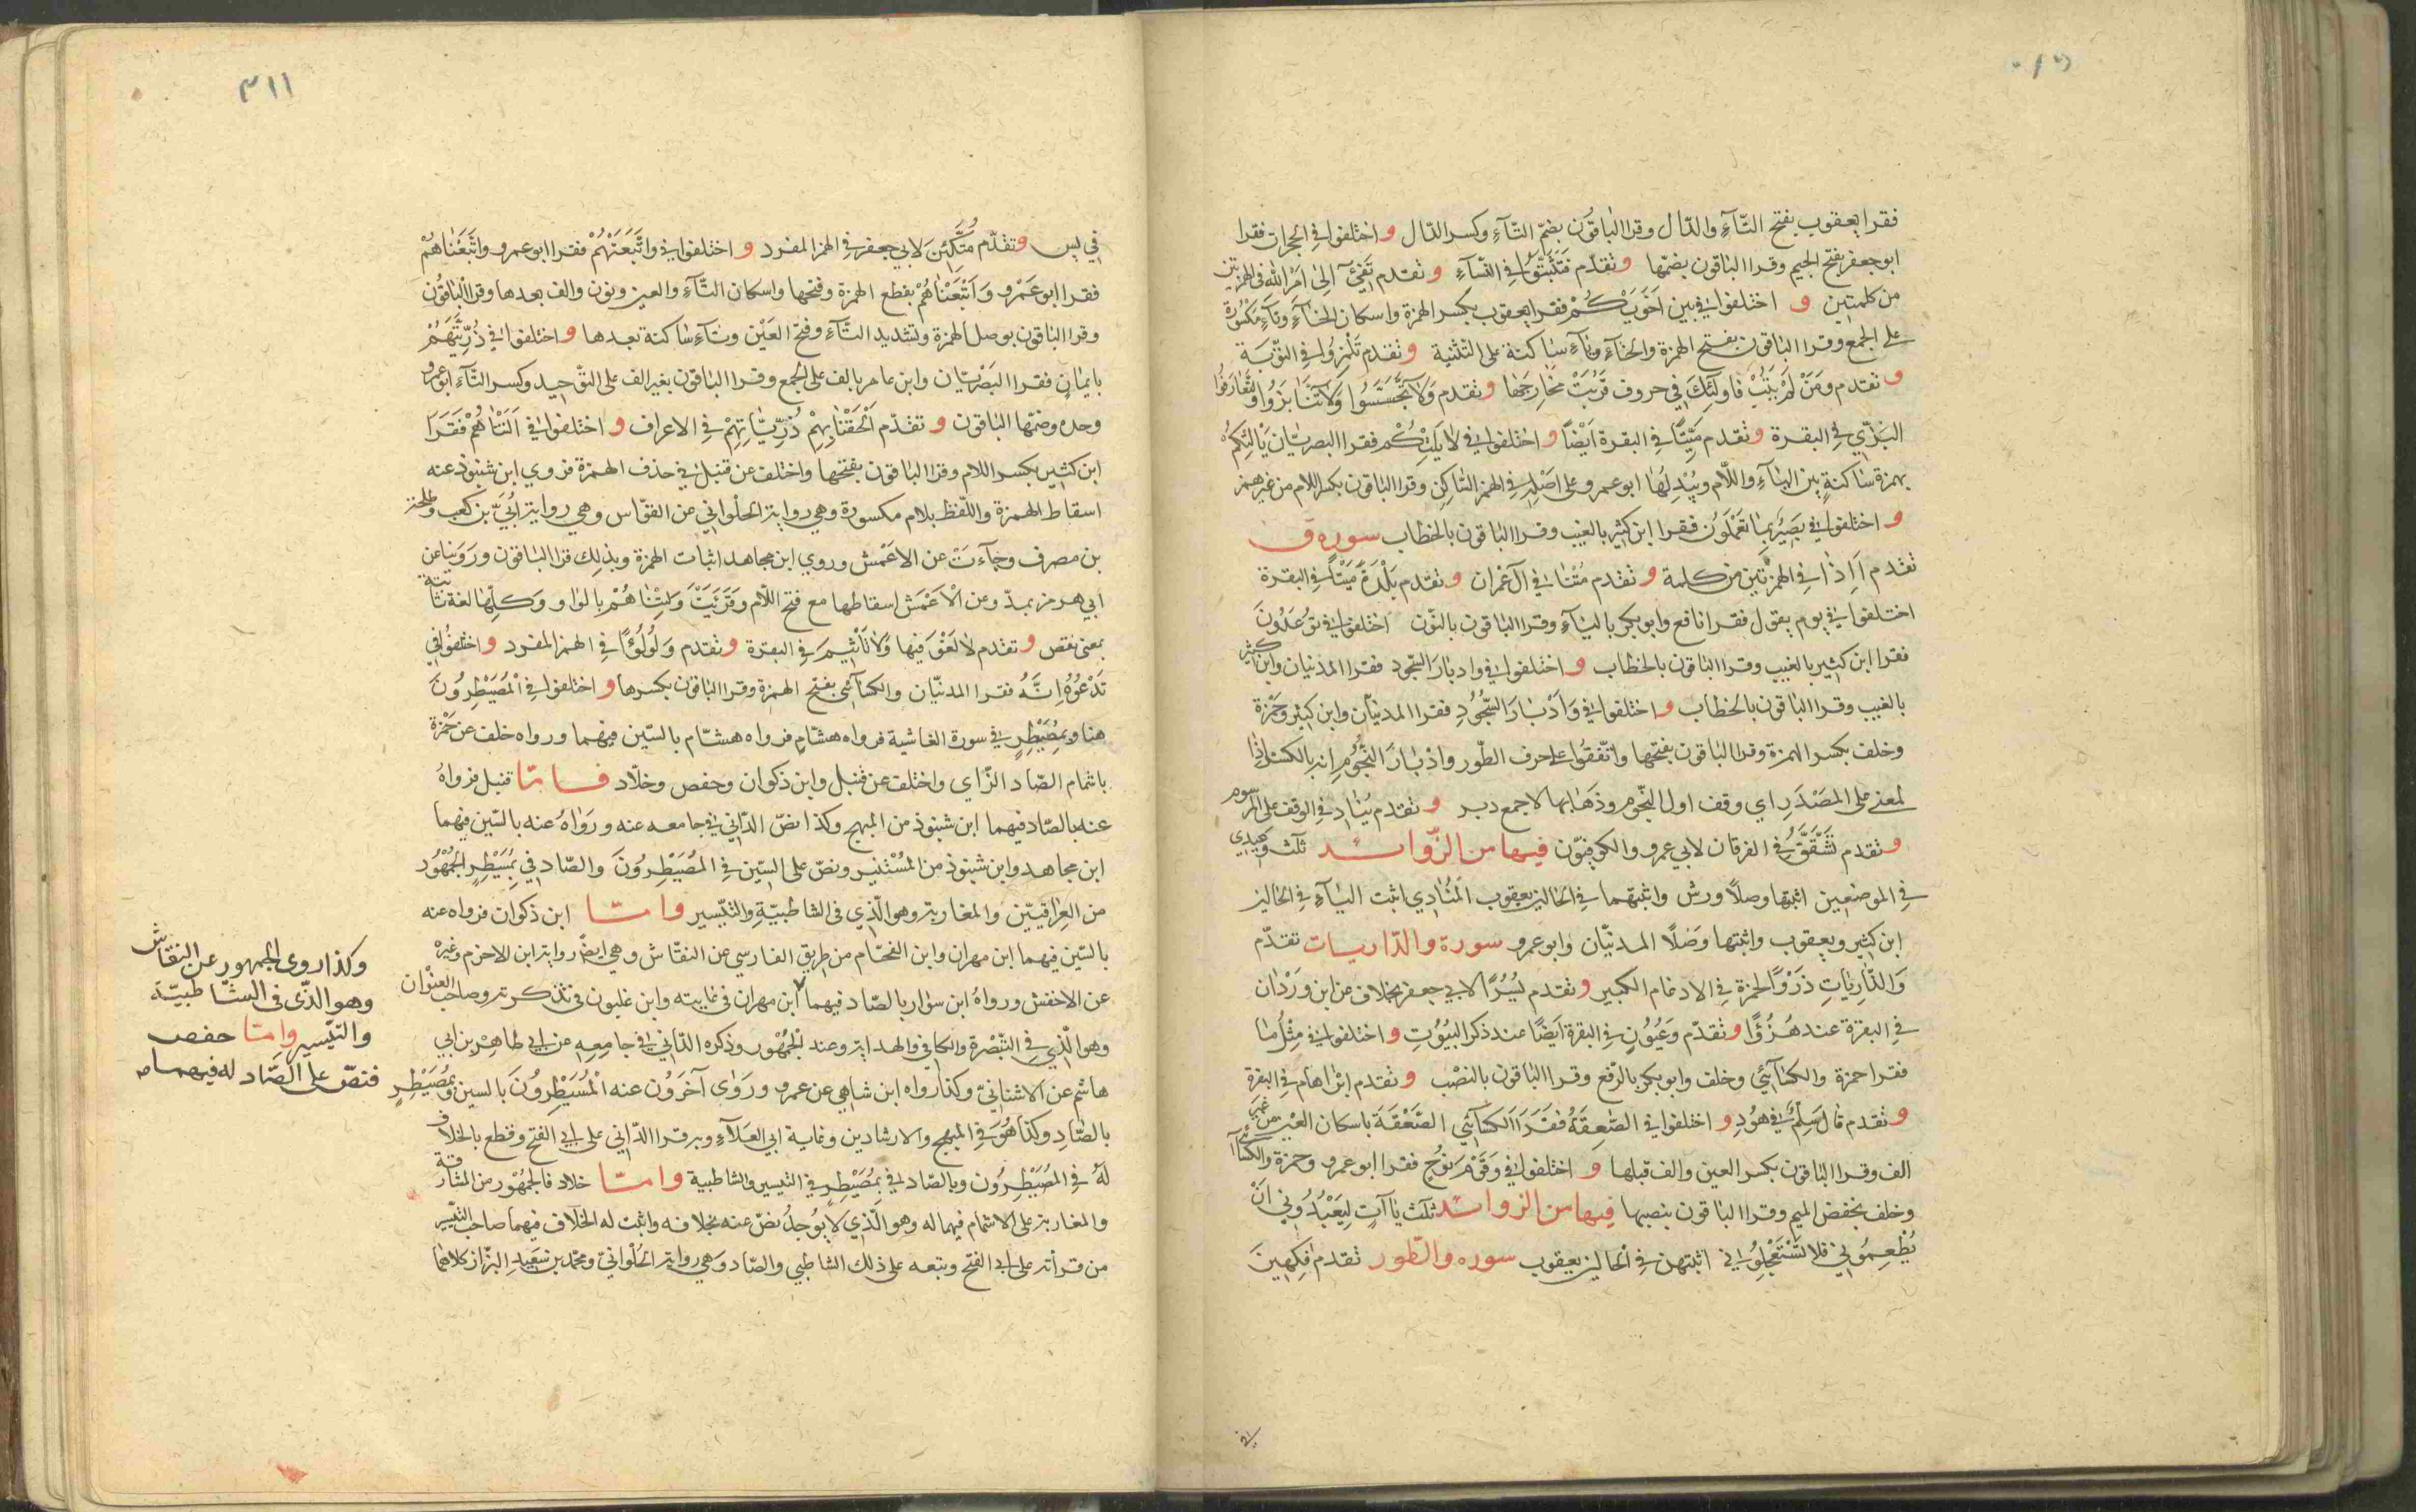 فقرا يعقوب بفتح التّآءِ والدّال وقرا الباقون بضمّ التّآءِ وكسر الدّال و اختلفوا في الحجرات فقرا
ابوجعفر بفتح الجيم وقرا الباقون بضمّها و تقدّم فَتَثَبَّتُوا في النّسآءِ و تقدم تَفِيٓءَ اِلىٰ اَمْرِ اللّٰه في الهمزتين
من كلمتين و اختلفوا في بين اَخَوَيْكُمْ فقرا يعقوب بكسر الهمزة واسكان الخآءِ وتآءٍ مَكْسُورَة
على الجمع وقرا الباقون بفتح الهمزة والخآءِ ويآءٍ ساكنة على التّثنية و تقدم تَلْمِزُوا في التّوبَة
و تقدم ومَنْ لَمْ يَتُبْ فَاولٰئِكَ في حروف قَرُبَتْ مخارجها و تقدم وَلاتَّجَسَّسُوا وَلاتَنابَزُوا ولِتَعارَفُوا
البَزّي في البقرة و تقدم مَيّتًا في البقرة اَيْضًا و اختلفوا في لايَلِتْكُمْ فقرا البصريّان يَاْلِتْكُمْ
بهمزة ساكنةٍ بين اليآءِ واللّام ويُبْدِلُهَا ابوعمرو على اَصْلِه في الهمز السّاكِن وقرا الباقون بكسر اللام من غير همز
و اختلفوا في بَصيرٌ بِما تَعْمَلُونَ فقرا ابن كثير بالغيب وقرا الباقون بالخطاب سورة ق
تقدم اَاِذا في الهمزتين من كلمة و تقدم مُتْنا في آل عمران و تقدم بَلْدَةً مَيْتًا في البقرة
اختلفوا في يوم يقول فقرا نافع وابوبكر باليآءِ وقرا الباقون بالنّون اختلفوا في تُوعَدُونَ
فقرا ابن كثير بالغيب وقرا الباقون بالخطاب و اختلفوا في وادبار السّجود فقرا المدنيان وابن كثير
بالغيب وقرا الباقون بالخطاب و اختلفوا في وَاَدْبارَ السّجُودِ فقرا المدنيّان وابن كثير وحَمْزة
وخلف بكسر الهمزة وقرا الباقون بفتحها واتّفقُوا على حرف الطّور وادْبارَ النّجُومِ انه بالكسر اذا
لمعنى على المَصْدَرِ اي وقف اول النّجوم وذَهَابها لا جمع دبر و تقدم يُناد في الوقف على المرسوم
و تقدم تَشَقَّقُ في الفرقان لابي عمرو والكوفيّون فيها من الزّوائد ثلث وَعيدي
في الموضعين اثبتها وصلًا ورش واثبتهما في الحالين يعقوب المُنادِي اثبت اليآءِ في الحالين
ابن كثير ويعقوب واثبتها وَصْلًا المدنيّان وابوعمرو سورة والذاريات تقدّم
وَالذّارِياتِ ذَرْوًا لحمزة في الادغام الكبير و تقدم يُسُرًا لابي جعفر بخلاف عن ابن ورْدَان
في البقرة عند هُزُؤًا و تقدّم وَعُيُونٍ في البقرة اَيضًا عند ذكر البُيُوتِ و اختلفوا في مِثْلَ مٰا
فقرا حمزة والكسآئي وخلف وابوبكر بالرّفع وقرا الباقون بالنصْب و تقدم ابْراهام في البقرة
و تقدم قالَ سِلْمٌ في هُودٍ و اختلفوا في الصّٰعِقَةُ فَقَرَاَ الكسآئي الصَّعْقَةَ باسكان العَيْن من غير
الف وقرا الباقون بكسر العين والف قبلها و اختلفوا في وَقَوْمَ نُوحٍ فقرا ابوعمرو وحمزة والكسآئي
وخلف بخفض الميم وقرا الباقون بنصبها فيها من الزوائد ثلٰث ياآتٍ لِيَعْبُدُوني اَنْ
يُطْعِمُوني فلا تَسْتَعْجِلُوني اثبتهن في الحالين يعقوب سوره والطّور تقدم فٰكِهينَ
٣١١
في يس و تقدّم مُتَّكِئينَ لابي جعفر في الهمز المفرد و اختلفوا في واتَّبَعَتْهُمْ فقرا ابوعمرو واَتْبَعْناهُمْ
فقرا ابوعَمْرو وَاَتْبَعْناهُمْ بقطع الهمزة وفتحها واسكان التّآءِ والعين ونون والف بعدها وقرا الباقُون
وقرا الباقون بوصل الهمزة وتشديد التّآءِ وفتح العَيْن وتآءٍ ساكنة بعدها و اختلفوا في ذُرّيّتهُمْ
بايمانٍ فقرا البَصْريّان وابن عامر بالف على الجمع وقرا الباقون بغير الف على التّوحيد وكسر التّآءِ ابوعمرو
وحده وضمّها الباقون و تقدّم اَلْحَقْنابِهِمْ ذُرّيّاتِهِمْ في الاعراف و اختلفوا في اَلَتْناهُمْ فَقَرَاَ
ابن كثير بكسر اللام وقرا الباقون بفتحها واختلف عن قنبل في حذف الهمزة فروي ابن شنبوذ عنه
اسقاط الهمزة واللّفظ بلام مكسورة وهي رواية الحُلْواني عن القوّاس وهي رواية اُبَيّ بن كعب وطلحة
بن مصرف وجآءَتْ عن الاعْمش وروي ابن مجاهد اثبات الهمزة وبذلك قرا الباقون ورَوَيْنا عن
ابي هرمز بمدّ وعن الْاَعْمَش اسقاطها مع فتح اللّام وقُرِئَتْ وَلِتْناهُمْ بالواو وَكلّها لغة ثابتة
بمعنى نقص و تقدم لا لَغْوَ فيها وَلا تَاْثيمَ في البقرة و تقدم ولُؤْلُؤًا في الهمز المفرد و اختلفُوا في
تَدْعُوهُ اِنَّهُ فقرا المدنيّان والكسآئي بفتح الهمزة وقرا الباقون بكسرها و اختلفوا في الْمُصَيْطِرُونَ
هنا وبِمُصَيْطِرٍ في سورة الغاشية فرواه هشامٍ فرواه هشّام بالسّين فيهما ورواه خلف عن حَمْزة
باشمام الصّاد الزّاي واختلف عن قنبل وابن ذكوان وحفص وخلّاد فامّا قنبل فرواهُ
عنه بالصّاد فيهما ابن شنبوذ من المبهج وكذا نصّ الدّاني في جامعه عنه ورَوَاهُ عنه بالسّين فيهما
ابن مجاهد وابن شنبوذ من المُسْتَنير ونصّ على السّين في المُصَيْطِرُونَ والصّاد في بِمُصَيْطِرٍ الجُمْهُور
من العِراقيّين والمغاربة وهو الّذي في الشاطبيّةِ والتّيْسير وامّا ابن ذكوان فرواه عنه
بالسّين فيهما ابن مهران وابن الفحّام من طريق الفارسي عن النقّاش وهي ايضًا رواية ابن الاخرم وغيره
عن الاخفش ورواهُ ابن سوار بالصّاد فيهما ابن مهران في غايته وابن غلبون في تذكرته وصاحب العِنْوان
وهو الّذي في التّبْصرة والكافي والهداية وعند الجُمْهُور وذكره الدّاني في جامِعِهِ عن ابي طاهِر بن ابي
هاشم عن الاشنانيّ وكذا رواه ابن شاهي عن عمرو ورَوٰى آخَرُون عنه الْمُسَيْطِرُونَ بالسين وبِمُصَيْطِرٍ
بالصّاد وكذا هُوَ في المبهج والارشادين وغاية ابي العَلآءِ وبه قرا الدّاني على ابي الفتح وقطع بالخلاف
لَهُ في المُصَيْطِرُون وبالصّاد في بِمُصَيْطِرٍ في التيسير والشاطبية وامّا خلاد فالجُمْهُور من المشارقة
والمغاربة على الاشمام فيهما له وهو الّذي لايُوجدُ نصّ عنه بخلافه واثبت له الخلاف فيهما صاحب التّيْسير
من قرأته على ابي الفتح وتبعه على ذلك الشاطبي والصّاد وَهي رواية الحُلْوانيّ ومحمّد بن سَعيدٍ البزّاز كلاهما
وكذا روى الجمهور عن النقاش
وهو الذّى فى الشّاطبيّة
والتّيسير وامّا حفص
فنصّ على الصّاد له فيهما